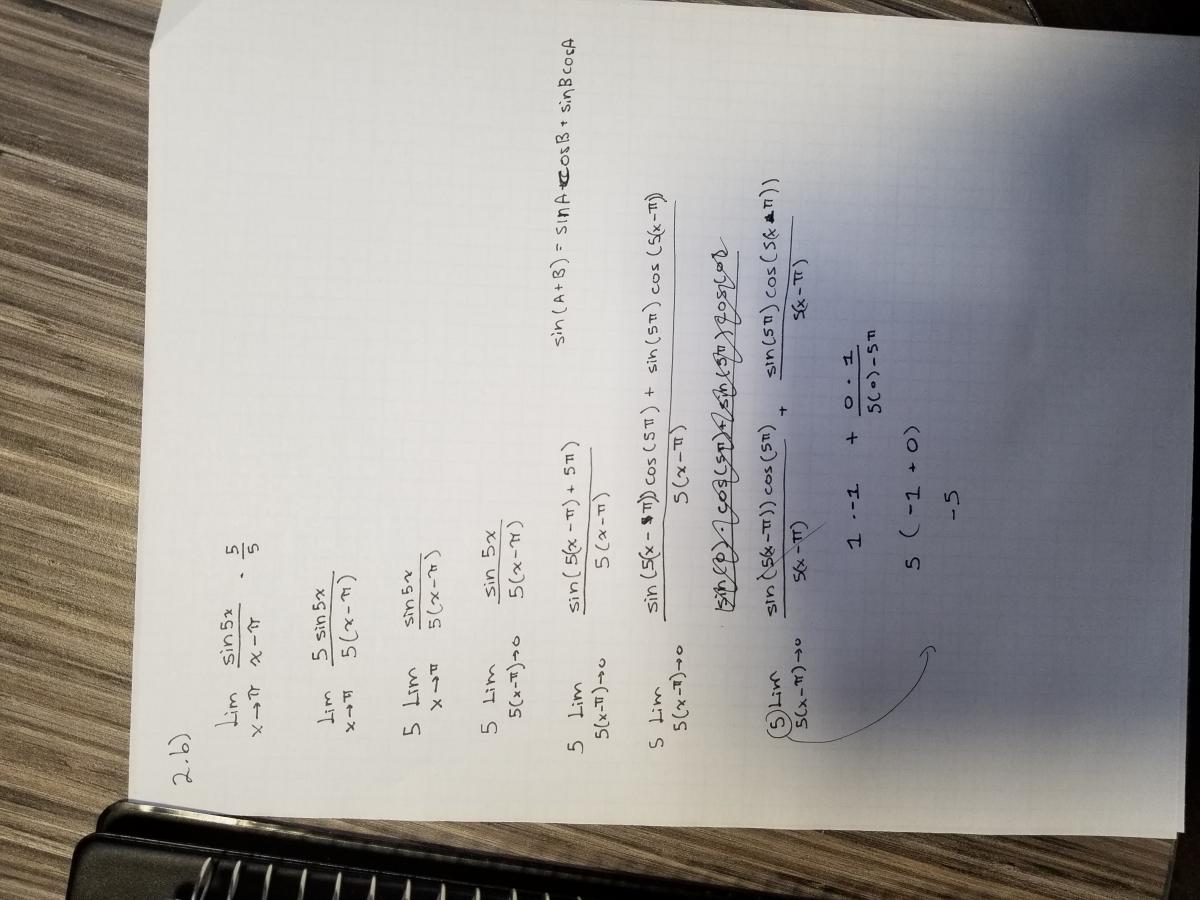 2.b)
Lim x→π sin5x / x-π · 5/5
Lim x→π 5 sin5x / 5(x-π)
5 Lim x→π sin5x / 5(x-π)
5 Lim 5(x-π)→0 sin5x / 5(x-π)
sin(A+B) = sinA cosB + sinBcosA
5 Lim 5(x-π)→0 sin(5(x-π)+5π) / 5(x-π)
5 Lim 5(x-π)→0 sin(5(x-π))cos(5π) + sin(5π) cos(5(x-π)) / 5(x-π)
5 Lim 5(x-π)→0 sin(5(x-π))cos(5π) / 5(x-π) + sin(5π) cos(5(x-π)) / 5(x-π)
1 · -1 + 0 · 1 / 5(0)-5π
5 (-1 + 0)
-5